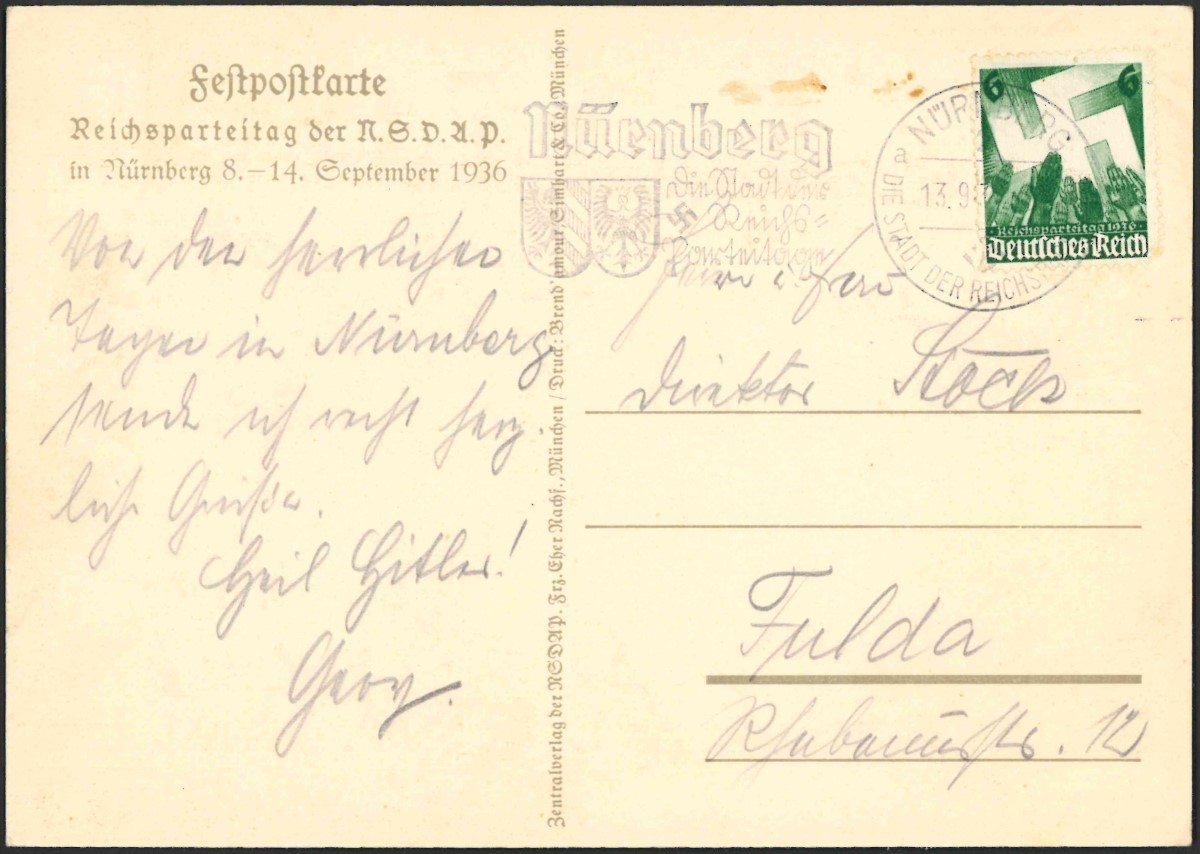 Festpostkarte
Reichsparteitag der N.S.D.A.P.
in Nürnberg 8.–14. September 1936
Von den herrlichen
Tagen in Nürnberg
sende ich recht herz-
liche Grüße.
Heil Hitler!
Georg.
Zentralverlag der NSDAP. Frz. Eher Nachf., München / Druck: Brend'amour, Simhart & Co., München
Nürnberg
Die Stadt der
Reichs=
parteitage
NÜRNBERG
a
13.9.3
DIE STADT DER REICHS
6 6
Reichsparteitag 1936
Deutsches Reich
Herrn u. Frau
Direktor Stock
Fulda
Rhabanusstr. 12